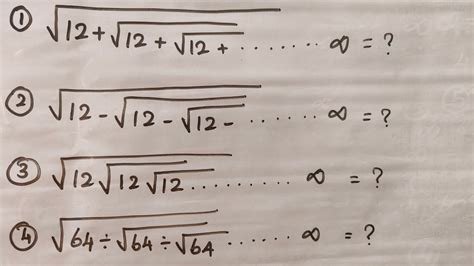 ① √12+√12+√12+ ....... ∞ = ?
② √12-√12-√12- ....... ∞ = ?
③ √12√12√12 .......... ∞ = ?
④ √64÷√64÷√64 ...... ∞ = ?